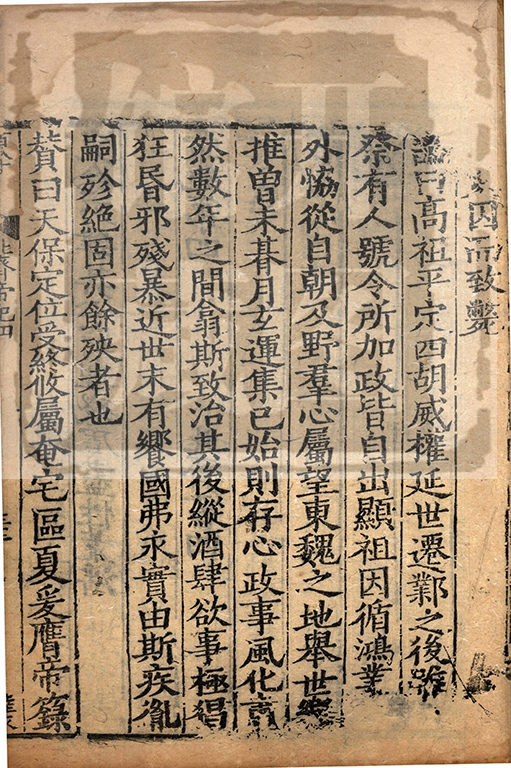 因而致斃
論曰高祖平定四胡威權延世遷鄴之後雖
奈有人號令所加政皆自出顯祖因循鴻業
外恊從自朝及野羣心屬望東魏之地舉世
推曽未朞月玄運集己始則存心政事風化
然數年之間翕斯致治其後縱酒肆欲事極猖
狂昏邪殘暴近世未有饗國弗永實由斯疾胤
嗣殄絶固亦餘殃者也
贊曰天保定位受終攸屬奄宅區夏爰膺帝籙